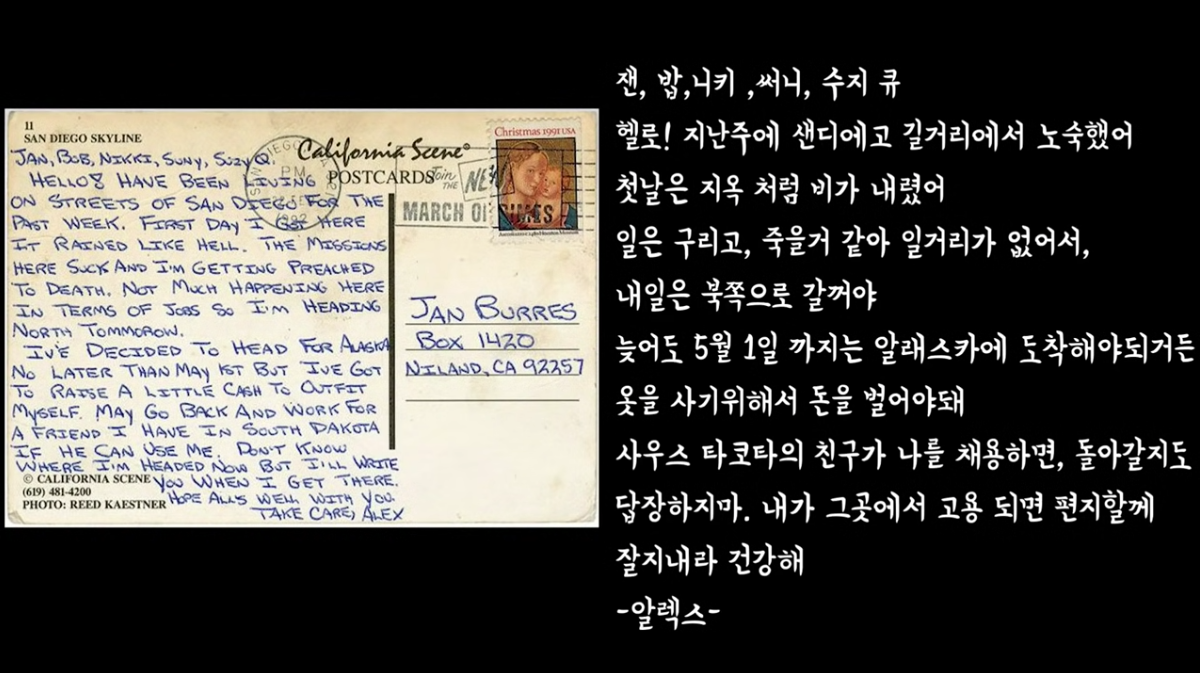 11
SAN DIEGO SKYLINE
JAN, BOB, NIKKI, SUNY, SUZY Q.
HELLO! HAVE BEEN LIVING
ON STREETS OF SAN DIEGO FOR THE
PAST WEEK. FIRST DAY I GOT HERE
IT RAINED LIKE HELL. THE MISSIONS
HERE SUCK AND I'M GETTING PREACHED
TO DEATH. NOT MUCH HAPPENING HERE
IN TERMS OF JOBS SO I'M HEADING
NORTH TOMMOROW.
IV'E DECIDED TO HEAD FOR ALASKA
NO LATER THAN MAY 1ST BUT I'VE GOT
TO RAISE A LITTLE CASH TO OUTFIT
MYSELF. MAY GO BACK AND WORK FOR
A FRIEND I HAVE IN SOUTH DAKOTA
IF HE CAN USE ME. DON'T KNOW
WHERE I'M HEADED NOW BUT I'LL WRITE
YOU WHEN I GET THERE.
HOPE ALL'S WELL WITH YOU.
TAKE CARE, ALEX
© CALIFORNIA SCENE
(619) 481-4200
PHOTO: REED KAESTNER
California Scene®
POSTCARDS
SAN DIEGO
PM
1992
Join
THE
MARCH OF DIMES
Christmas 1991 USA
JAN BURRES
BOX 1420
NILAND, CA 92257
잰, 밥,니키 ,써니, 수지 큐
헬로! 지난주에 샌디에고 길거리에서 노숙했어
첫날은 지옥 처럼 비가 내렸어
일은 구리고, 죽을거 같아 일거리가 없어서,
내일은 북쪽으로 갈꺼야
늦어도 5월 1일 까지는 알래스카에 도착해야되거든
옷을 사기위해서 돈을 벌어야돼
사우스 타코타의 친구가 나를 채용하면, 돌아갈지도
답장하지마. 내가 그곳에서 고용 되면 편지할께
잘지내라 건강해
-알렉스-